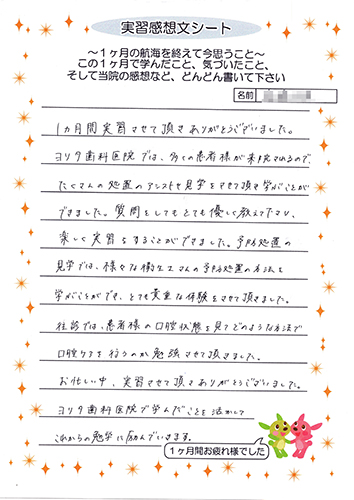 実習感想文シート
～1ヶ月の航海を終えて今思うこと～
この1ヶ月で学んだこと、気づいたこと、
そして当院の感想など、どんどん書いて下さい
名前
1ヵ月間実習させて頂きありがとうございました。
ヨリタ歯科医院では、多くの患者様が来院されるので、
たくさんの処置のアシストや見学をさせて頂き学ぶことが
できました。質問をしてもとても優しく教えて下さり、
楽しく実習をすることができました。予防処置の
見学では、様々な衛生士さんの予防処置の方法を
学ぶことができ、とても貴重な体験をさせて頂きました。
往診では、患者様の口腔状態を見てどのような方法で
口腔ケアを行うのか勉強させて頂きました。
お忙しい中、実習させて頂きありがとうございました。
ヨリタ歯科医院で学んだことを活かして
これからの勉学に励んでいきます。
1ヶ月間お疲れ様でした